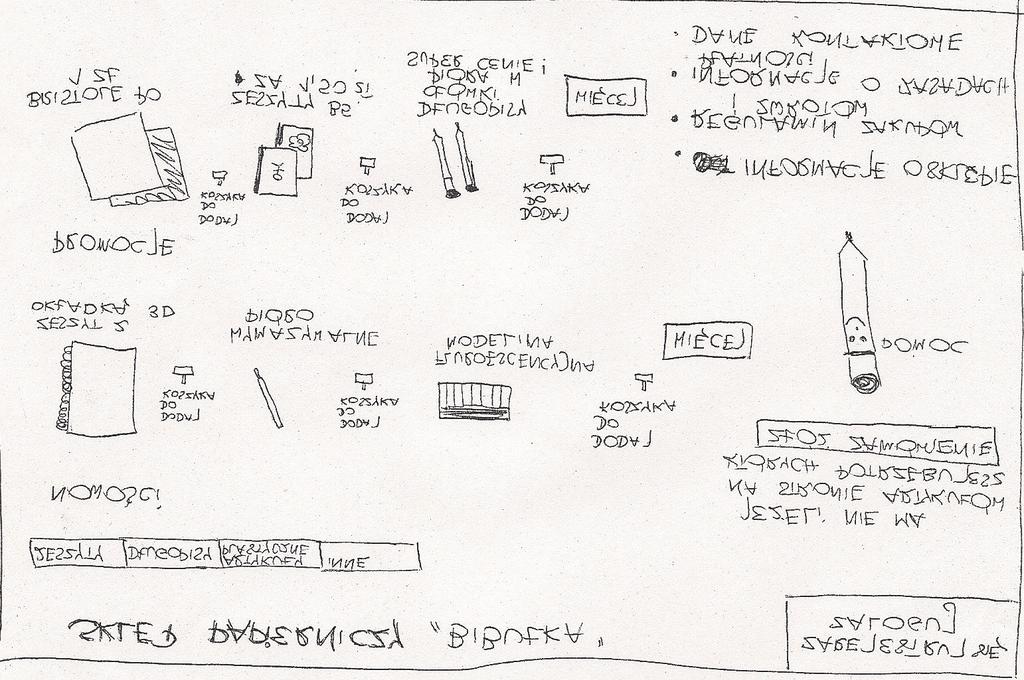 SKLEP PAPIERNICZY "BIBUŁKA"
ZAREJESTRUJ SIĘ
ZALOGUJ
ZESZYTY
DŁUGOPISY
ARTYKUŁY
PLASTYCZNE
INNE
NOWOŚCI
DODAJ
DO
KOSZYKA
DODAJ
DO
KOSZYKA
DODAJ
DO
KOSZYKA
ZESZYT Z
OKŁADKĄ 3D
WYMAZYWALNE
PIÓRO
FLUROESCENCYJNA
MODELINA
WIĘCEJ
JEŻELI NIE MA
NA STRONIE ARTYKUŁÓW
KTÓRYCH POTRZEBUJESZ
ZŁÓŻ ZAMÓWIENIE
POMOC
PROMOCJE
DODAJ
DO
KOSZYKA
DODAJ
DO
KOSZYKA
DODAJ
DO
KOSZYKA
BRISTOLE PO
1 ZŁ
B5
ZESZYTY
ZA 1,50 zł
DŁUGOPISY
OŁÓWKI
PIÓRA W
SUPER CENIE!
WIĘCEJ
• INFORMACJE O SKLEPIE
• REGULAMIN ZAKUPÓW
I ZWROTÓW
• INFORMACJE O ZASADACH
PŁATNOŚCI
• DANE KONTAKTOWE